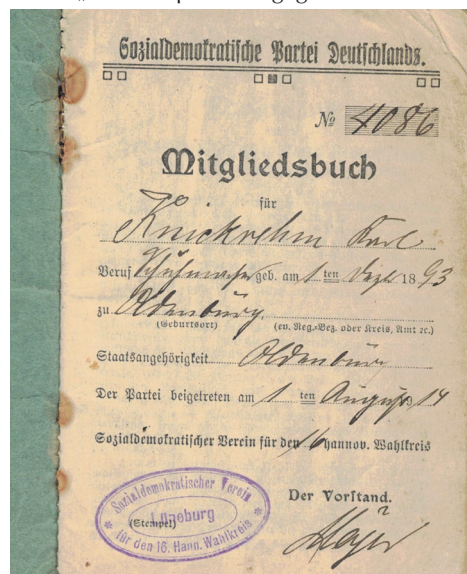 Sozialdemokratische Partei Deutschlands.
No 4086
Mitgliedsbuch
für
Knickrehm Karl
Beruf Schuhmacher geb. am 1 ten Dez. 1893
zu Oldenburg,
(Geburtsort) (ev. Reg.-Bez. oder Kreis, Amt ec.)
Staatsangehörigkeit Oldenburg
Der Partei beigetreten am 1 ten August 14
Sozialdemokratischer Verein für den 16 hannov. Wahlkreis
Der Vorstand.
Sozialdemokratischer Verein
Lüneburg
(Stempel)
für den 16. Hann. Wahlkreis